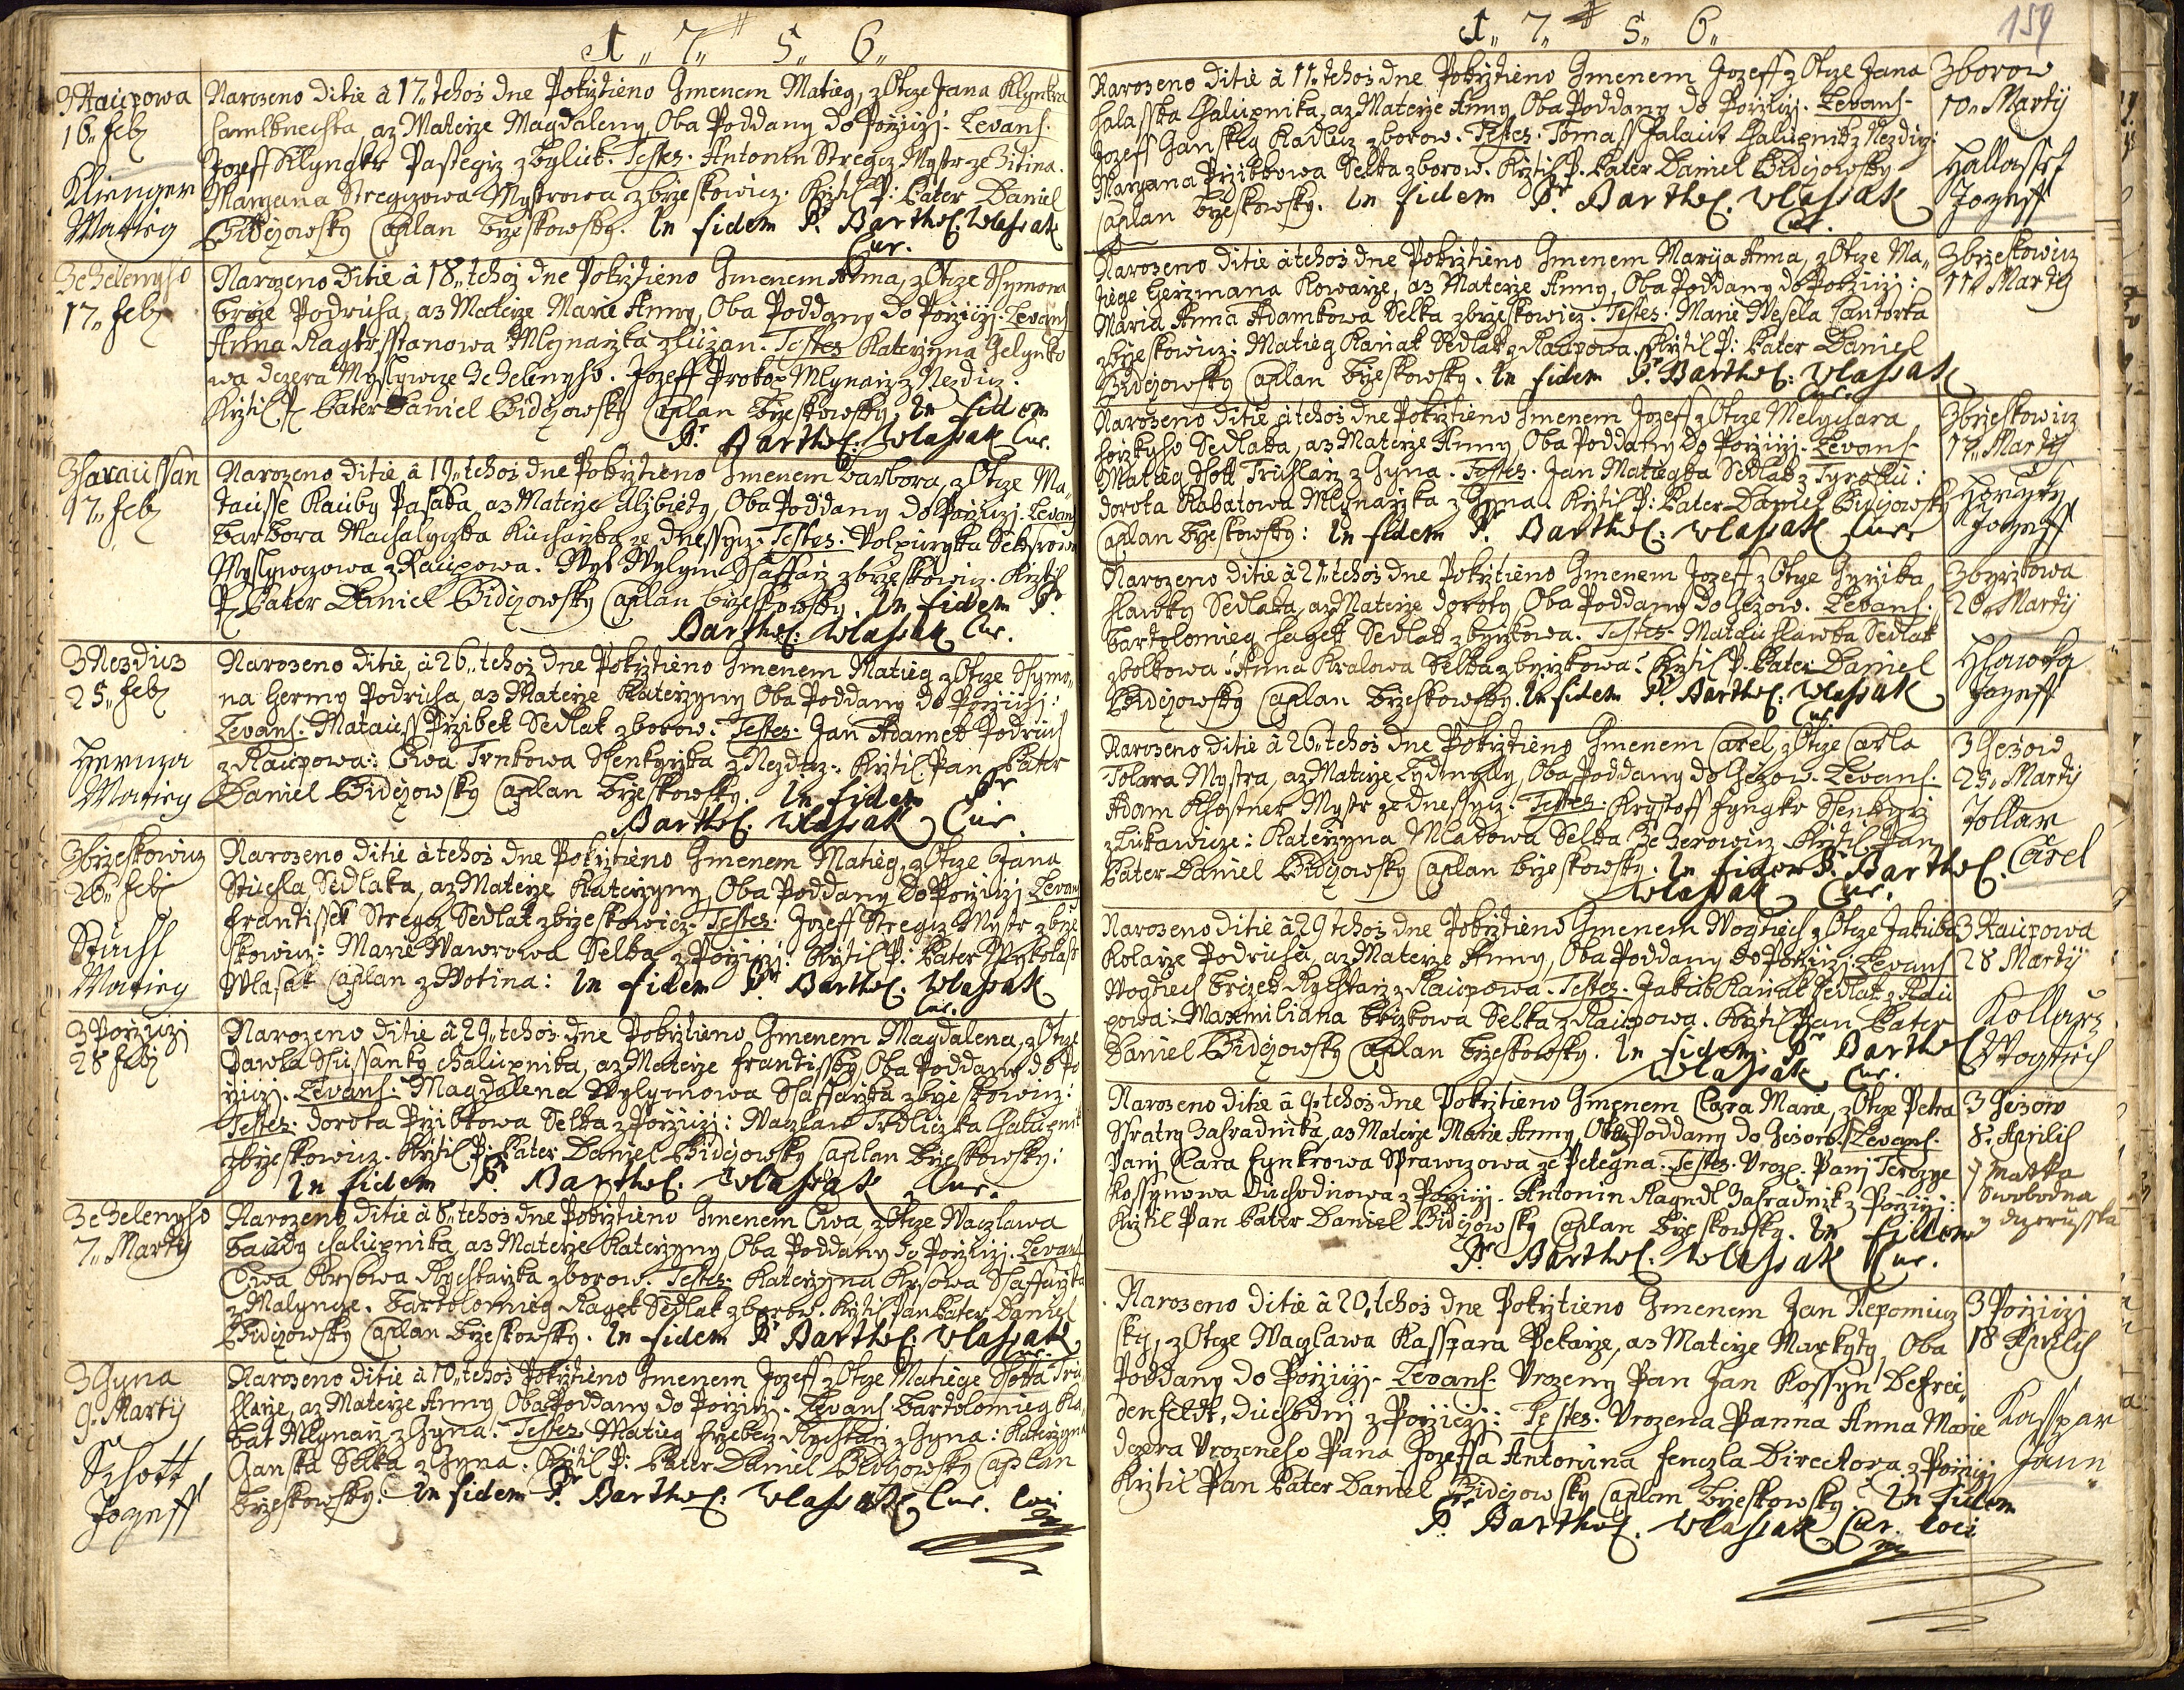 1,, 7,, 5,, 6,,
z Raupowa
16,, Feb
Klienger
Matieg
Narozeno ditie â 17,, tehoz dne Pokrztieno Gmenem Matieg, z Otcze Jana Klynkra
az Materze Magdaleny, Oba Poddany do Porziczj. Levans.
Jozeff Klyngkr Pastegrz z Byluk. Testes. Antonin Stregcz Mystr ze Zitina.
Maryana Stregczowa Mystrowa z brzeskowicz. Krztil P: Pater Daniel
Bidczowsky Caplan brzeskowsky. In fidem P. Barthol. Wlassak
Cur.
ze Zelenyho
17,, Feb
Narozeno Ditie â 18,, tehoz dne Pokrztieno Gmenem Anna, z Otcze Ssymona
Broze Podruha, az Materze Marie Anny, Oba Poddany do Porziczj. Levans
Anna Mlynarzka z Luzan. Testes Katerzyna Gelynko
wa dczera Myslywcze Ze Zelenyho. Jozeff Prokop Mlynarz z Nezdicz.
Krztil P. Pater Daniel Bidczowsky Caplan brzeskowsky, In fidem
P. Barthol. Wlassak Cur.
z haraussan
17,, Feb
Narozeno Ditie â 19,, tehoz dne Pokrztieno Gmenem Barbora, z Otcze Ma,,
tausse Kauby Pasaka, az Materze Alzbiety, Oba Poddany do Porziczj. Levans
Barbora Machalyczka Kucharzka ze dnessycz. Testes. Wolpurgka
Myslywczowa z Raupowa. Wyt Wylym Ssaffarz z brzeskowicz. Krztil
P. Pater Daniel Bidczowsky Caplan brzeskowsky. In fidem P.
Barthol: Wlassak Cur.
z Nezdicz
25,, Feb
Herma
Matieg
Narozeno Ditie, â 26,, tehoz dne Pokrztieno Gmenem Matieg z Otcze Ssymo,,
na Hermy Podruha, az Materze Katerzyny Oba Poddany do Porziczj:
Levans. Matauss Przibek Sedlak z borow. Testes. Jan Adamek Podruh
z Raupowa: Ewa Trnkowa Ssenkyrzka z Nezdicz: Krztil Pan Pater
Daniel Bidczowsky Caplan brzeskowsky. In fidem P.
Barthol. Wlassak Cur.
z brzeskowicz
26,, Feb
Stuchl
Matieg
Narozeno ditie â tehoz dne Pokrztieno Gmenem Matieg, z Otcze Jana
Stuchla Sedlaka, az Materze Katerzyny, Oba Poddany do Porziczj Levans
Frantissek Stregcz Sedlak z brzeskowicz. Testes: Jozeff Stregcz Mystr z brze
skowicz: Marie Wawrowa Selka z Porziczj: Krztil P. Pater Mykolass
Wlasak Caplan z Wotina: In fidem P. Barthol. Wlassak
Cur.
z Porziczj
28 Feb
Narozeno ditie â 29,, tehoz dne Pokrztieno Gmenem Magdalena, z Otcze
Pawla Ssussanky chalupnika, az Materze Frantissky, Oba Poddany do Po
rziczj. Levans. Magdalena Wylymowa Ssaffarzka z brzeskowicz:
Testes. Dorota Przibkowa Selka z Porziczj: Waczlaw Trdliczka Chalupnik
z brzeskowicz. Krztil P: Pater Daniel Bidczowsky Caplan brzeskowsky:
In fidem P. Barthol. Wlassak Cur.
ze Zelenyho
7,, Marty
Narozeno ditie â 8,, tehoz dne Pokrztieno Gmenem Ewa, z Otcze Waczlawa
Baudy Chalupnika, az Materze Katerzyny, Oba Poddany do Porziczj. Levans
Ewa Krsowa Rychtarzka z borow. Testes. Katerzyna Krsowa Ssaffarzka
z Malyncze. Bartolomieg Ragek Sedlak z borow. Krztil Pan Pater Daniel
Bidczowsky Caplan brzeskowsky. In fidem P. Barthol: Wlassak
Cur.
z Gyna
9. Martij
Schott
Jozeff
Narozeno ditie â 10,, tehoz Pokrztieno Gmenem Jozeff z Otcze Matiege Ssotta Tru
hlarze, az Materze Anny Oba Poddany do Porziczj. Levans Bartolomieg Ra,
bat Mlynarz z Gyna. Testes Matieg Rychtarz z Gyna: Katerzyna
Ganska Selka z Gyna. Krztil P: Pater Daniel Bidczowsky Caplan
brzeskowsky: In fidem P. Barthol: Wlassak Cur. loci
1,, 7,, 5,, 6,,
159
Narozeno ditie â 11,, tehoz dne Pokrztieno Gmenem Jozeff z Otcze Jana
halasska Chalupnika, az Materze Anny, Oba Poddany do Porziczj. Levans.
Jozeff Ganskey Kadlecz z borow. Testes. Tomass Chalupnik z Nezdicz:
Maryana Przibkowa Selka z borow. Krztil P. Pater Daniel Bidczowsky
Caplan brzeskowsky. In fidem P. Barthol. Wlassak
Cur.
z borow
10,, Martij
Hallassek
Jozeff
Narozeno ditie â tehoz dne Pokrztieno Gmenem Marija Anna, z Otcze Ma,,
tiege Gerzmana Kowarze, az Materze Anny, Oba Poddany do Porziczj:
Maria Anna Adamkowa Selka z brzeskowicz. Testes. Marie Wesela Cantorka
z brzeskowicz: Matieg Kaniak Sedlak z Raupowa. Krztil P: Pater Daniel
Bidczowsky Caplan brzeskowsky. In fidem P. Barthol: Wlassak
Cur.
z brzeskowicz
11,, Martij
Narozeno ditie â tehoz dne Pokrztieno Gmenem Jozeff z Otcze Melychara
horzkyho Sedlaka, az Materze Anny, Oba Poddany do Porziczj. Levans
Matieg Ssott Truhlarz z Gyna. Testes. Jan Matiegka Sedlak z
Dorota Rabatowa Mlynarzka z Gyna. Krztil P: Pater Daniel Bidczowsky
Caplan brzeskowsky: In fidem P. Barthol: Wlassak Cur.
z brzeskowicz
17,, Martij
Jozeff
Narozeno ditie â 21,, tehoz dne Pokrztieno Gmenem Jozeff z Otcze Gyrzika
hlawky Sedlaka, az Materze Doroty, Oba Poddany do Gezow. Levans.
Bartolomieg hagek Sedlak z byrkowa. Testes. Matau hlawka Sedlak
z bolkowa: Anna Kralowa Selka z byrzkowa: Krztil P. Pater Daniel
Bidczowsky Caplan brzeskowsky. In fidem P. Barthol: Wlassak
Cur.
z byrzkowa
20,, Martij
Hlawka
Jozeff
Narozeno ditie â 26,, tehoz dne Pokrztieno Gmenem Carel, z Otcze Carla
Tolara Mystra, az Materze Lydmyly, Oba Poddany do Gezow. Levans.
Adam Khostner Mystr ze dnessycz. Testes. Krystoff Fyngkr Ssenkyrz
z Lukawicze: Katerzyna Mladowa Selka ze Zerowicz Krztil Pan
Pater Daniel Bidczowsky Caplan brzeskowsky. In fidem P. Barthol.
Wlassak Cur.
z Gezow
25,, Martij
Tollar
Carel
Narozeno ditie â 29 tehoz dne Pokrztieno Gmenem Wogtiech z Otcze Jakuba
Kolarze Podruha, az Materze Anny, Oba Poddany do Porziczj. Levans
Wogtiech Brizek Rychtarz z Raupowa. Testes. Jakub Kaniak Sedlak z Rau
powa: Maxmiliana Selka z Raupowa. Krztil Pan Pater
Daniel Bidczowsky Caplan brzeskowsky. In fidem P. Barthol
Wlassak Cur.
z Raupowa
28 Martij
Kollarz
Wogtiech
Narozeno ditie â 9. tehoz dne Pokrztieno Gmenem Clara Marie, z Otcze Petra
Ssratny Zahradnika, az Materze Marie Anny, Oba Poddany do Gezow. Levans.
Panj Clara Fynkrowa Sprawczowa ze Petegna. Testes. Uroz. Panj Terezye
Kossynowa Duchodnowa z Porziczj. Antonin Ragndl Zahradnik z Porziczj:
Krztil Pan Pater Daniel Bidczowsky Caplan brzeskowsky. In fidem
P. Barthol. Wlassak Cur.
z Gezow
8. Aprilis
matka
Swobodna
y dczerusska
Narozeno ditie â 20,, tehoz dne Pokrztieno Gmenem Jan Nepomucz
ky, z Otcze Waczlawa Kasspara Pekarze, az Materze Markyty, Oba
Poddany do Porziczj. Levans. Urozeny Pan Jan Kossyn Defrei,,
denfeldt, duchodnj z Porziczj: Testes. Urozena Panna Anna Marie
dczera Urozeneho Pana Jozeffa Antonina Fenczla Directora z Porziczj
Krztil Pan Pater Daniel Bidczowsky Caplan brzeskowsky: In fidem
P. Barthol. Wlassak Cur. loci
z Porziczj
18 Aprilis
Kasspar
Jann